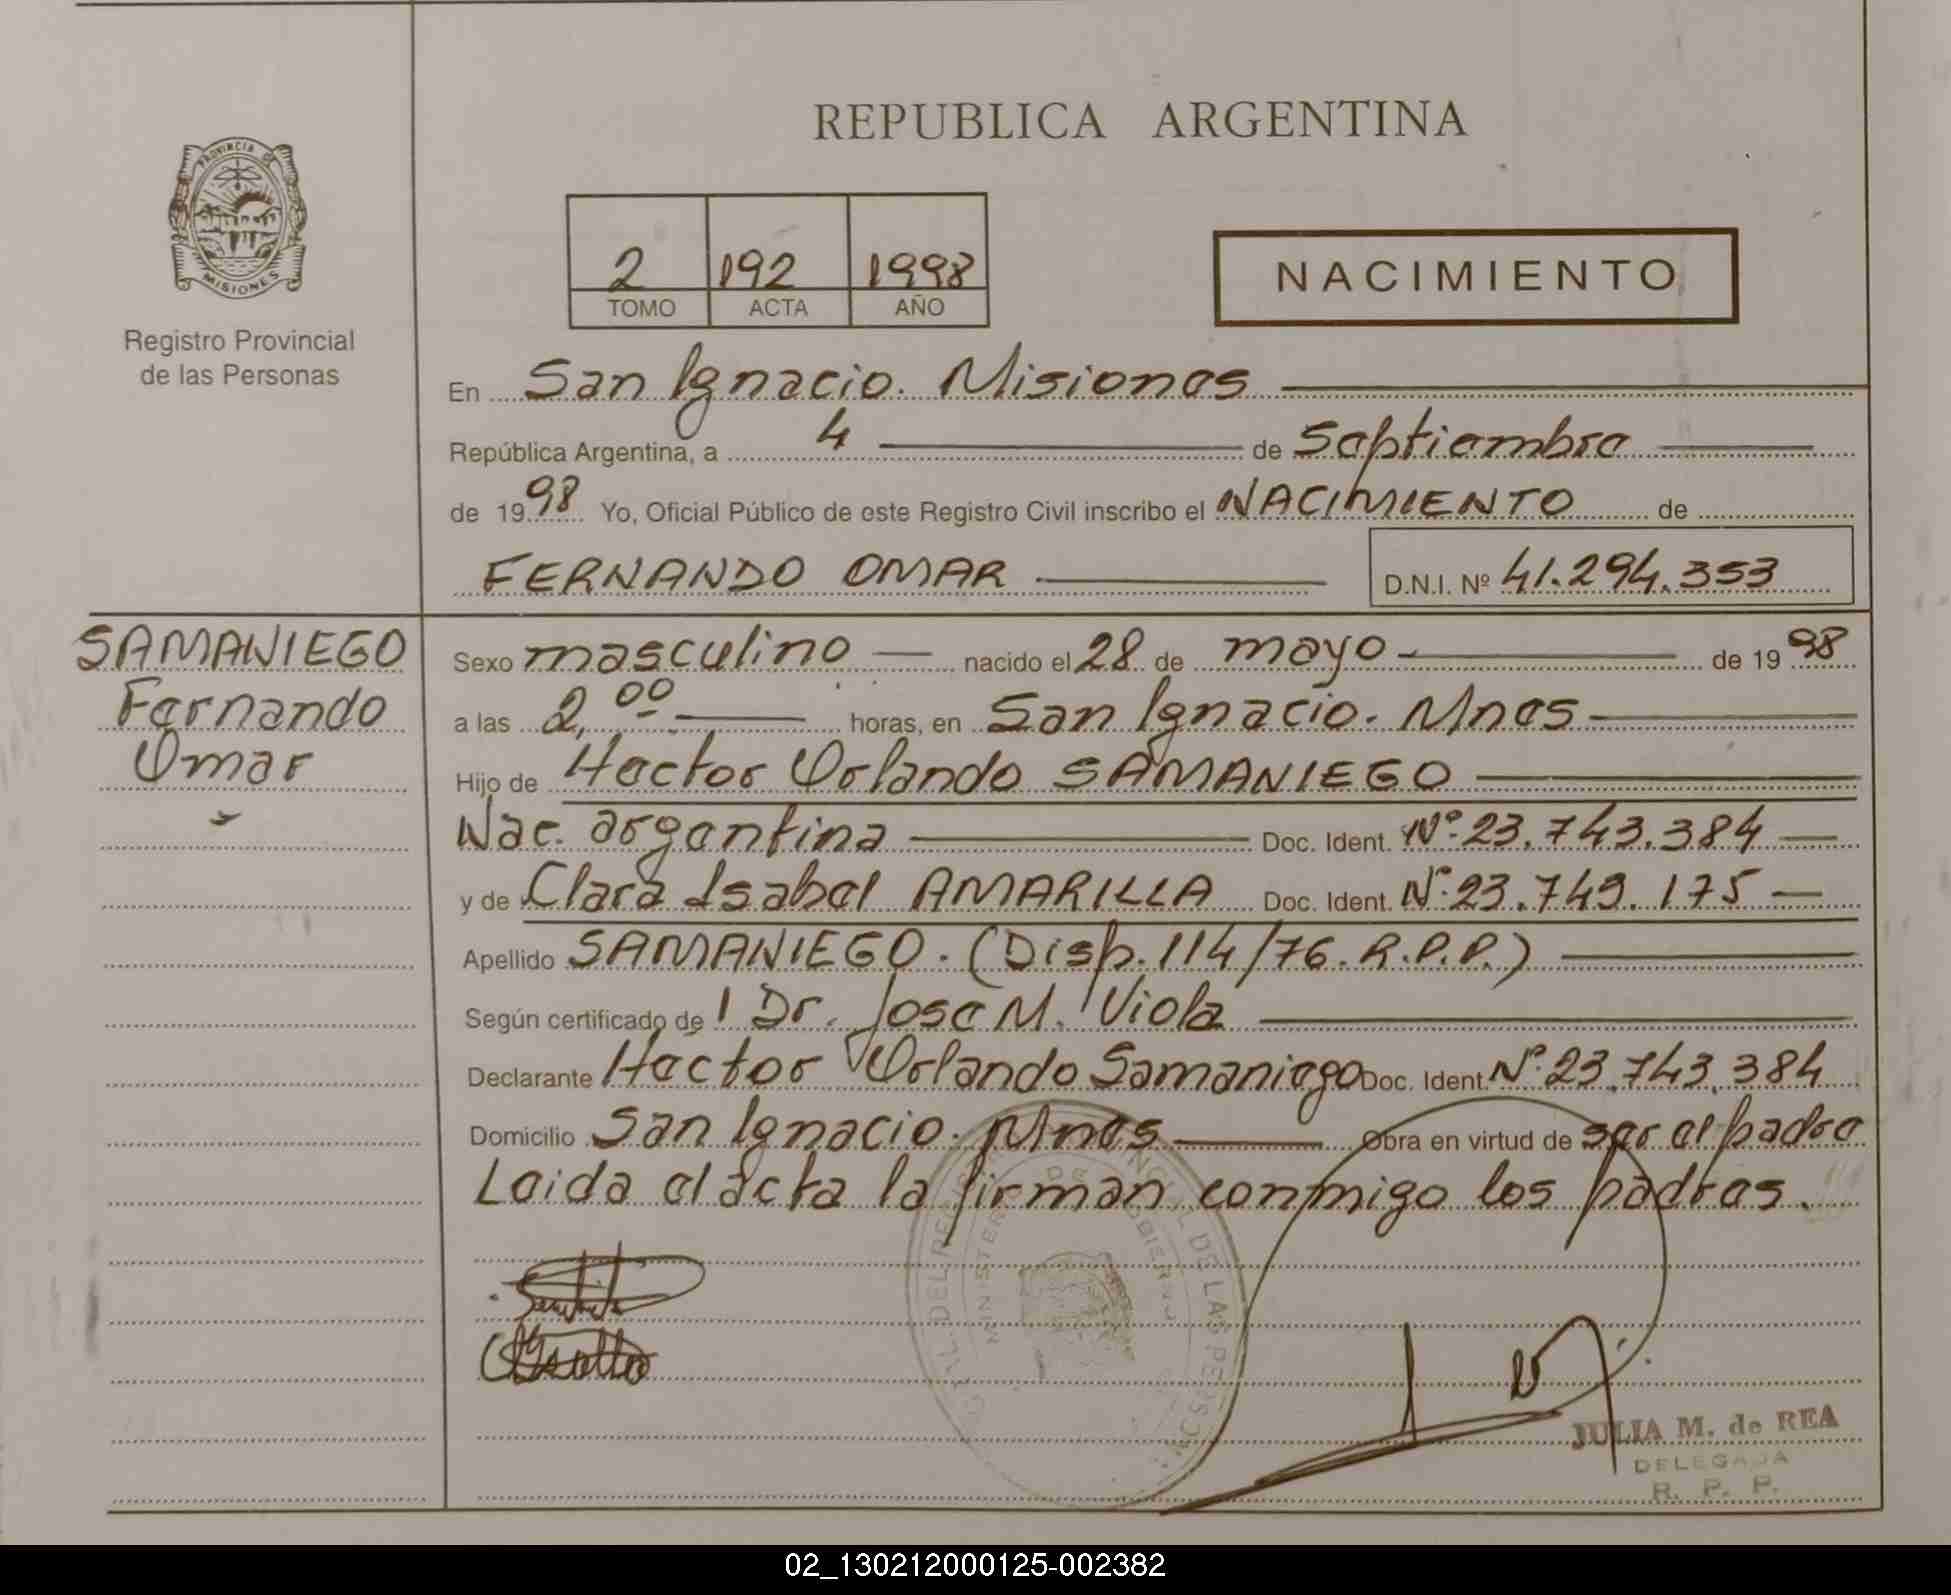 REPUBLICA ARGENTINA
PROVINCIA DE
MISIONES
Registro Provincial
de las Personas
2 192 1998
TOMO ACTA AÑO
NACIMIENTO
En San Ignacio. Misiones
República Argentina, a 4 de Septiembre
de 1998 Yo, Oficial Público de este Registro Civil inscribo el NACIMIENTO de
FERNANDO OMAR D.N.I. Nº 41.294.353
SAMANIEGO
Fernando
Omar
Sexo masculino nacido el 28 de mayo de 1998
a las 2,00 horas, en San Ignacio. Mnes
Hijo de Hector Orlando SAMANIEGO
Nac. argentina Doc. Ident. Nº 23.743.384
y de Clara Isabel AMARILLA Doc. Ident. Nº 23.749.175
Apellido SAMANIEGO. (Disp. 114/76. R.P.P.)
Según certificado de 1 Dr. Jose M. Viola
Declarante Hector Orlando Samaniego Doc. Ident. Nº 23.743.384
Domicilio San Ignacio. Mnes Obra en virtud de ser el padre
Leida el acta la firman conmigo los padres.
JULIA M. de REA
DELEGADA
R. P. P.
02_130212000125-002382